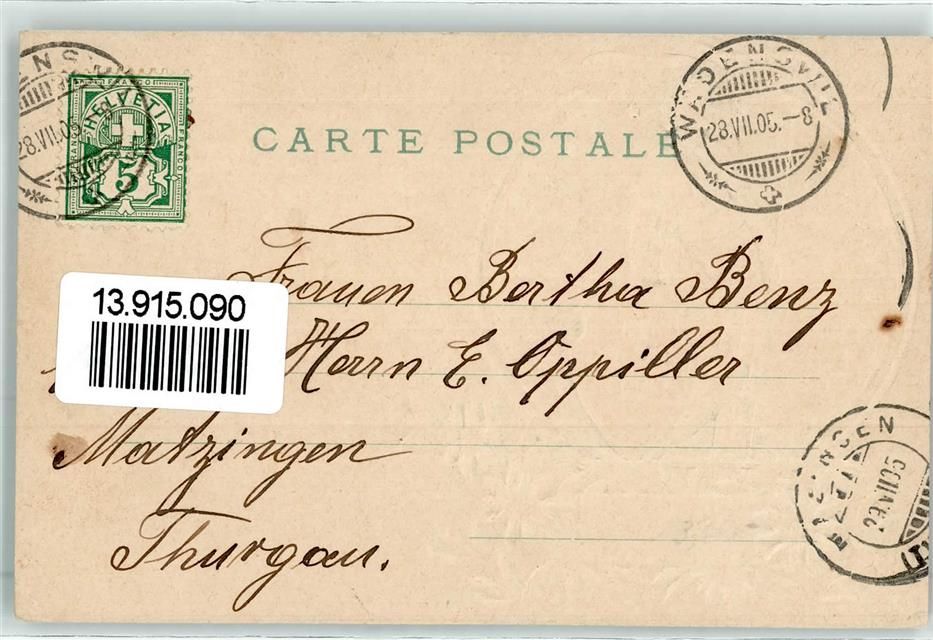 FRANCO
HELVETIA
5
28.VII.05
CARTE POSTALE
WÄDENSWIL
28.VII.05.-8
Frauen Bertha Benz
13.915.090
Herrn E. Oppiller
Matzingen
Thurgau.